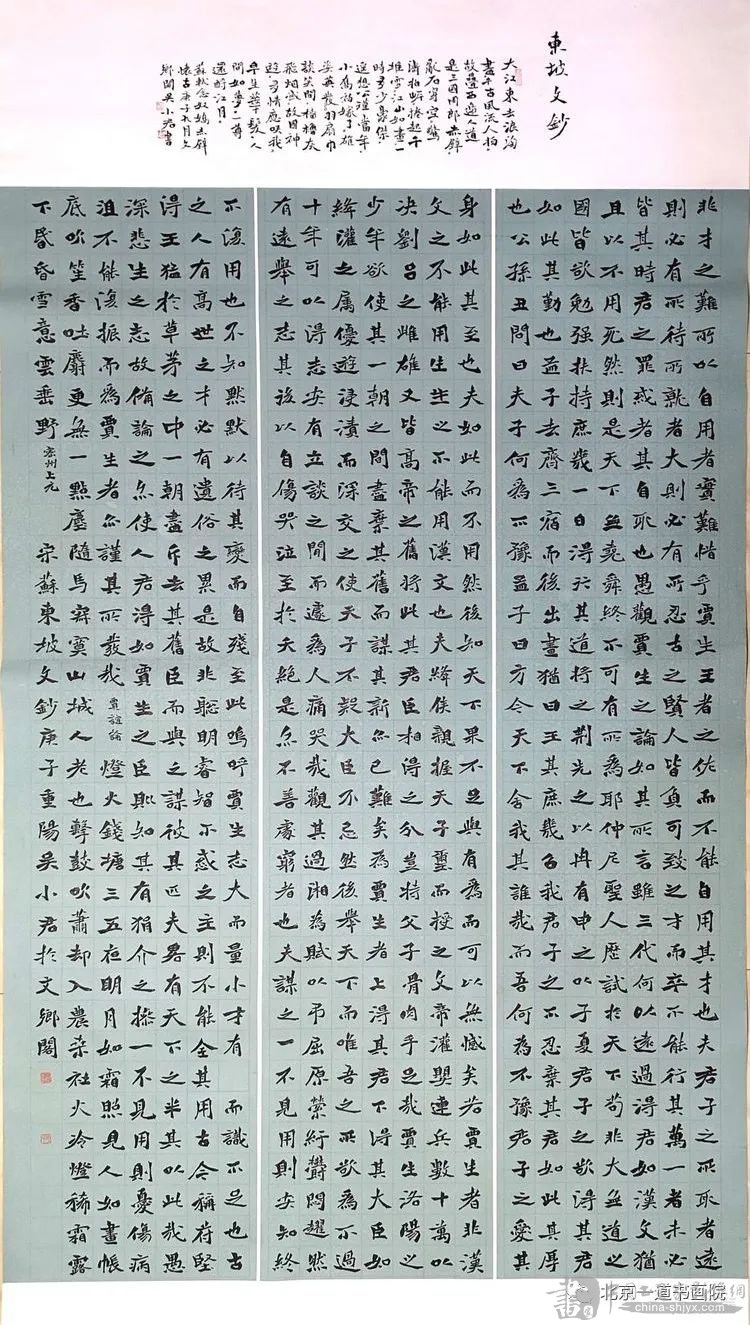 東坡文鈔
大江東去浪淘
盡千古風流人物
故壘西邊人道
是三國周郎赤壁
亂石穿空驚
濤拍岸捲起千
堆雪江山如畫一
時多少豪傑
遙想公瑾當年
小喬初嫁了雄
姿英發羽扇巾
談笑間檣櫓灰
飛煙滅故國神
遊多情應笑我
早生華髮人
間如夢一尊
還酹江月
蘇軾念奴嬌赤壁
懷古庚子九月文
鄉閣吳小君書
非才之難所以自用者實難惜乎賈生王者之佐而不能自用其才也夫君子之所取者遠
則必有所待所就者大則必有所忍古之賢人皆負可致之才而卒不能行其萬一者未必
皆其時君之罪或者其自取也愚觀賈生之論如其所言雖三代何以遠過得君如漢文猶
且以不用死然則是天下無堯舜終不可有所為耶仲尼聖人歷試於天下苟非大無道之
國皆欲勉強扶持庶幾一日得行其道將之荊先之以冉有申之以子夏君子之欲得其君
如此其勤也孟子去齊三宿而後出晝猶曰王其庶幾召我君子之不忍棄其君如此其厚
也公孫丑問曰夫子何為不豫孟子曰方今天下舍我其誰哉而吾何為不豫君子之愛其
身如此其至也夫如此而不用然後知天下果不足與有為而可以無憾矣若賈生者非漢
文之不能用生生之不能用漢文也夫絳侯親握天子璽而授之文帝灌嬰連兵數十萬以
決劉呂之雌雄又皆高帝之舊將此其君臣相得之分豈特父子骨肉手足哉賈生洛陽之
少年欲使其一朝之間盡棄其舊而謀其新亦已難矣為賈生者上得其君下得其大臣如
絳灌之屬優遊浸漬而深交之使天子不疑大臣不忌然後舉天下而唯吾之所欲為不過
十年可以得志安有立談之間而遽為人痛哭哉觀其過湘為賦以弔屈原縈紆鬱悶趯然
有遠舉之志其後以自傷哭泣至於夭絕是亦不善處窮者也夫謀之一不見用則安知終
不復用也不知默默以待其變而自殘至此嗚呼賈生志大而量小才有 而識不足也古
之人有高世之才必有遺俗之累是故非聰明睿智不惑之主則不能全其用古今稱苻堅
得王猛於草茅之中一朝盡斥去其舊臣而與之謀彼其匹夫略有天下之半其以此哉愚
深悲生之志故備論之亦使人君得如賈生之臣則知其有狷介之操一不見用則憂傷病
沮不能復振而為賈生者亦謹其所發哉 賈誼論 燈火錢塘三五夜明月如霜照見人如畫帳
底吹笙香吐麝更無一點塵隨馬寂寞山城人老也擊鼓吹簫却入農桑社火冷燈稀霜露
下昏昏雪意雲垂野 密州上元 宋蘇東坡文鈔庚子重陽吳小君於文鄉閣
北京一道书画院
china-shjyx.com